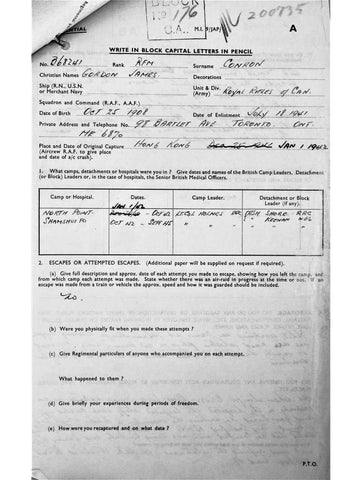 BLOCK
No 176
C.A.
M.I. 9/JAP/
200835
A
WRITE IN BLOCK CAPITAL LETTERS IN PENCIL
No. Rank RFM Surname CONRON
Christian Names GORDON JAMES Decorations
Ship (R.N., U.S.N. or Merchant Navy Unit & Div. (Army) ROYAL RIFLES OF CAN.
Squadron and Command (R.A.F., A.A.F.)
Date of Birth OCT 25 1908 Date of Enlistment July 18 1941
Private Address and Telephone No. 98 BARTLET AVE TORONTO ONT.
Place and Date of Original Capture HONG KONG JAN 1
(Aircrew R.A.F. to give place
and date of a/c crash).
1. What camps, detachments or hospitals were you in ? Give dates and names of the British Camp Leaders, Detachment
(or Block) Leaders or, in the case of hospitals, the Senior British Medical Officers.
Camp or Hospital. Dates. Camp Leader. Detachment or Block Leader (if any).
JAN 1/42
NORTH POINT OCT 42
SHAMSHUI PO OCT 42 - SEPT 45 " "
2. ESCAPES OR ATTEMPTED ESCAPES. (Additional paper will be supplied on request if required).
(a) Give full description and approx. date of each attempt you made to escape, showing how you left the camp, and
from which camp each attempt was made. State whether there was an air-raid in progress at the time or not. If an
escape was made from a train or vehicle the approx. speed and how it was guarded should be included.
No.
(b) Were you physically fit when you made these attempts ?
(c) Give Regimental particulars of anyone who accompanied you on each attempt.
What happened to them ?
(d) Give briefly your experiences during periods of freedom.
(e) How were you recaptured and on what date ?
P.T.O.